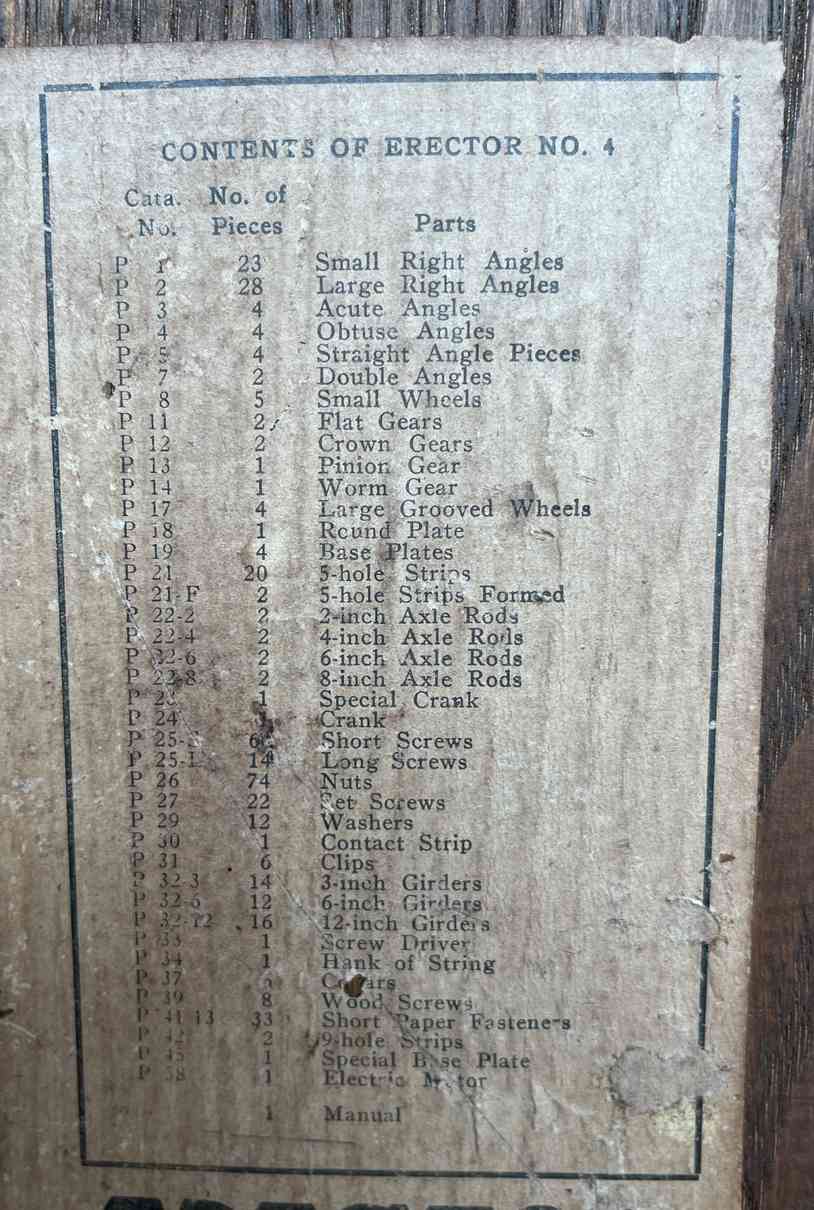 CONTENTS OF ERECTOR NO. 4
Cata. No. of
No. Pieces Parts
P 1 23 Small Right Angles
P 2 28 Large Right Angles
P 3 4 Acute Angles
P 4 4 Obtuse Angles
P 5 4 Straight Angle Pieces
P 7 2 Double Angles
P 8 5 Small Wheels
P 11 2 Flat Gears
P 12 2 Crown Gears
P 13 1 Pinion Gear
P 14 1 Worm Gear
P 17 4 Large Grooved Wheels
P 18 1 Round Plate
P 19 4 Base Plates
P 21 20 5-hole Strips
P 21-F 2 5-hole Strips Formed
P 22-2 2 2-inch Axle Rods
P 22-4 2 4-inch Axle Rods
P 22-6 2 6-inch Axle Rods
P 22-8 2 8-inch Axle Rods
P 23 1 Special Crank
P 24 1 Crank
P 25-S Short Screws
P 25-L 14 Long Screws
P 26 74 Nuts
P 27 22 Set Screws
P 29 12 Washers
P 30 1 Contact Strip
P 31 6 Clips
P 32-3 14 3-inch Girders
P 32-6 12 6-inch Girders
P 32-12 16 12-inch Girders
P 33 1 Screw Driver
P 34 1 Hank of String
P 37 Collars
P 39 8 Wood Screws
P 41 13 33 Short Paper Fasteners
P 2 9-hole Strips
P 1 Special Base Plate
P 58 1 Electric Motor
1 Manual